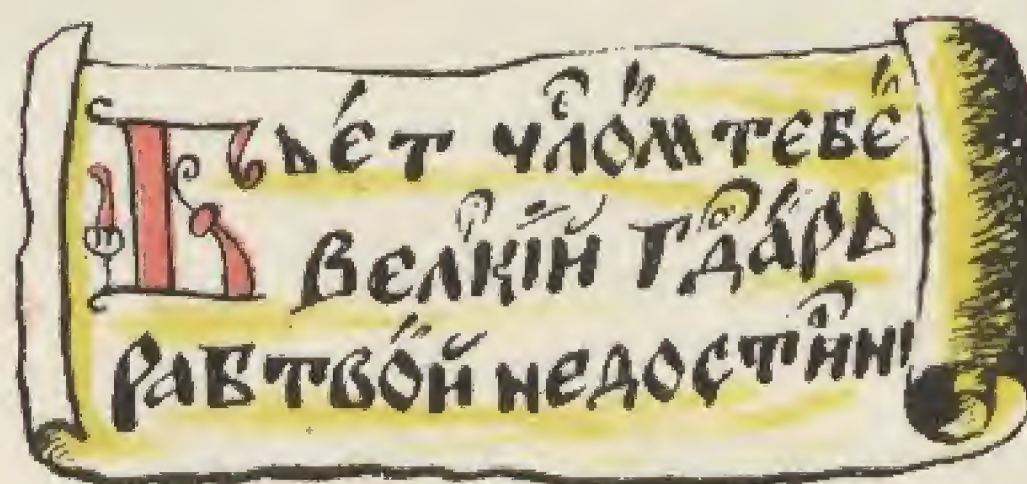 Бьет члом тебе
велкiй гдарь
раб твой недостннı